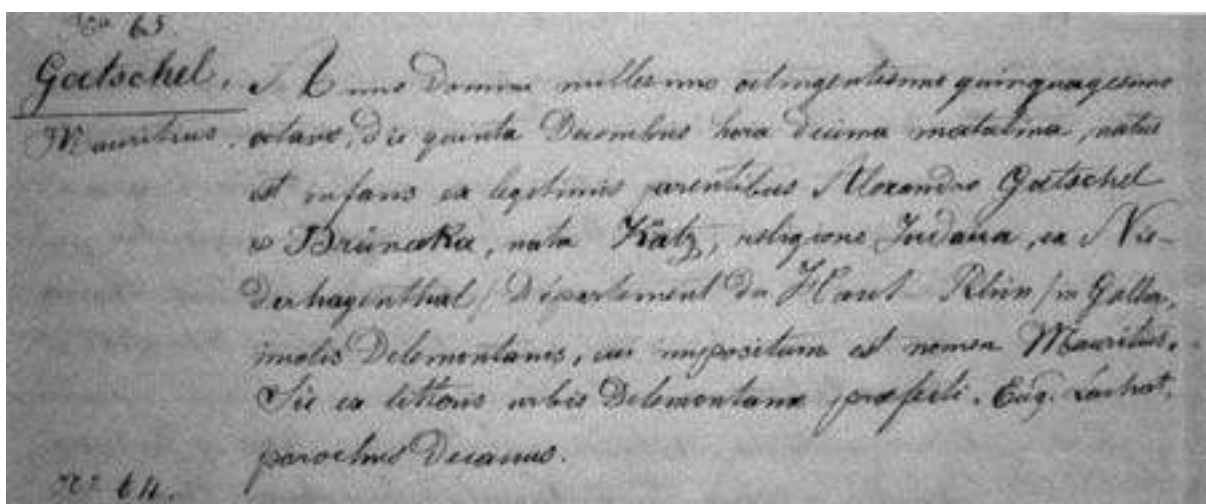 No 63.
Goetschel.
Mauritius.
Anno Domini millesimo octingentesimo quinquagesimo
octavo, die quinta Decembris hora decima matutina, natus
est infans ex legitimis parentibus Alexandro Goetschel
&, nata Katz, religione Judaica, ex Nie-
derhagenthal / Département du Haut-Rhin / in Gallia,
incolis Delemontanis, cui impositum est nomen Mauritius.
Sic ex litteris urbis Delemontanae praefecti. Eug. Lachat,
parochus Decanus.
No 64.